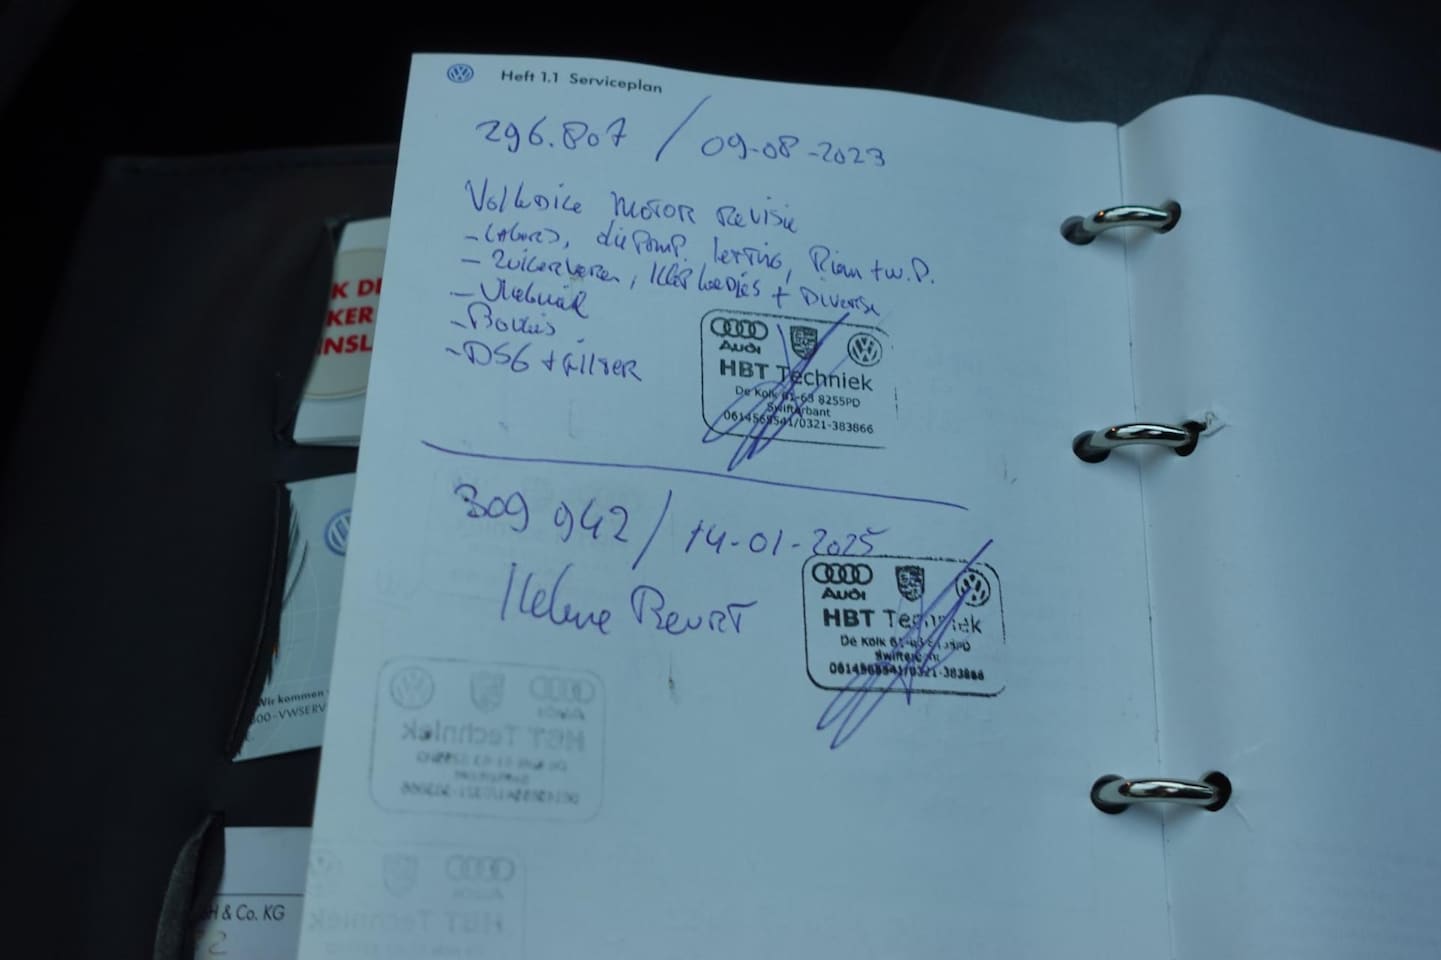 Heft 1.1 Serviceplan
296.807 / 09-08-2023
Volledige motor revisie
- Lagers, oliepomp, ketting, Riem + w.P.
- Zuigerveren, klepseals + Diverse
- Vliegwiel
- Bougies
- DSG + filter
Audi
HBT Techniek
De Kolk 61-63 8255PD
Swifterbant
0614569541/0321-383866
309 942 / 14-01-2025
Kleine Beurt
Audi
HBT Techniek
De Kolk 61-63 8255PD
Swifterbant
0614569541/0321-383866
K DI
KER
INSL
Wir kommen
800-VWSERV
H & Co. KG
2